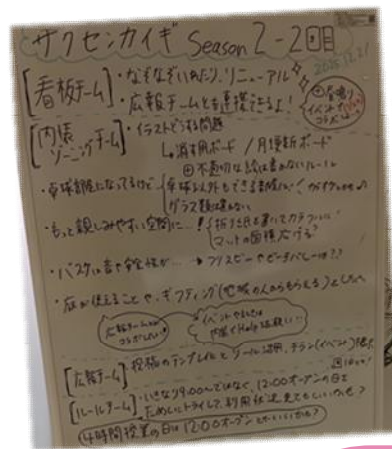 サクセンカイギ Season 2-2回目
2025.12.21
[看板チーム]
・なぞなぞいれたり、リニューアル
・広報チームとも連携できるよ!
[内装ゾーニングチーム]
・イラストどうする問題
↳ 消す用ボード / 月更新ボード
⊕不適切な絵は書かないルール
・卓球部屋になってるけど
卓球以外もできる部屋に!
グラス類は置かない
・もっと親しみやすい空間に…!
折り紙を置いてカラフルに!
マットの面積広げる?
・バスケは音や安全性が… → フリスビーやビーチバレーは??
・庭が使えることや、ギフティング(地域の人からもらえる)
広報チームとコラボしたい!
イベントやるときは内装でHelp
[広報チーム]
投稿のテンプレ化とツール活用、チラシ(イベント)
[ルールチーム]
・いきなり9:00〜ではなく、12:00オープンの日を
ためしにトライして、利用状況見てもいいかも?
4時間授業の日は12:00オープンとかでもいいかも?